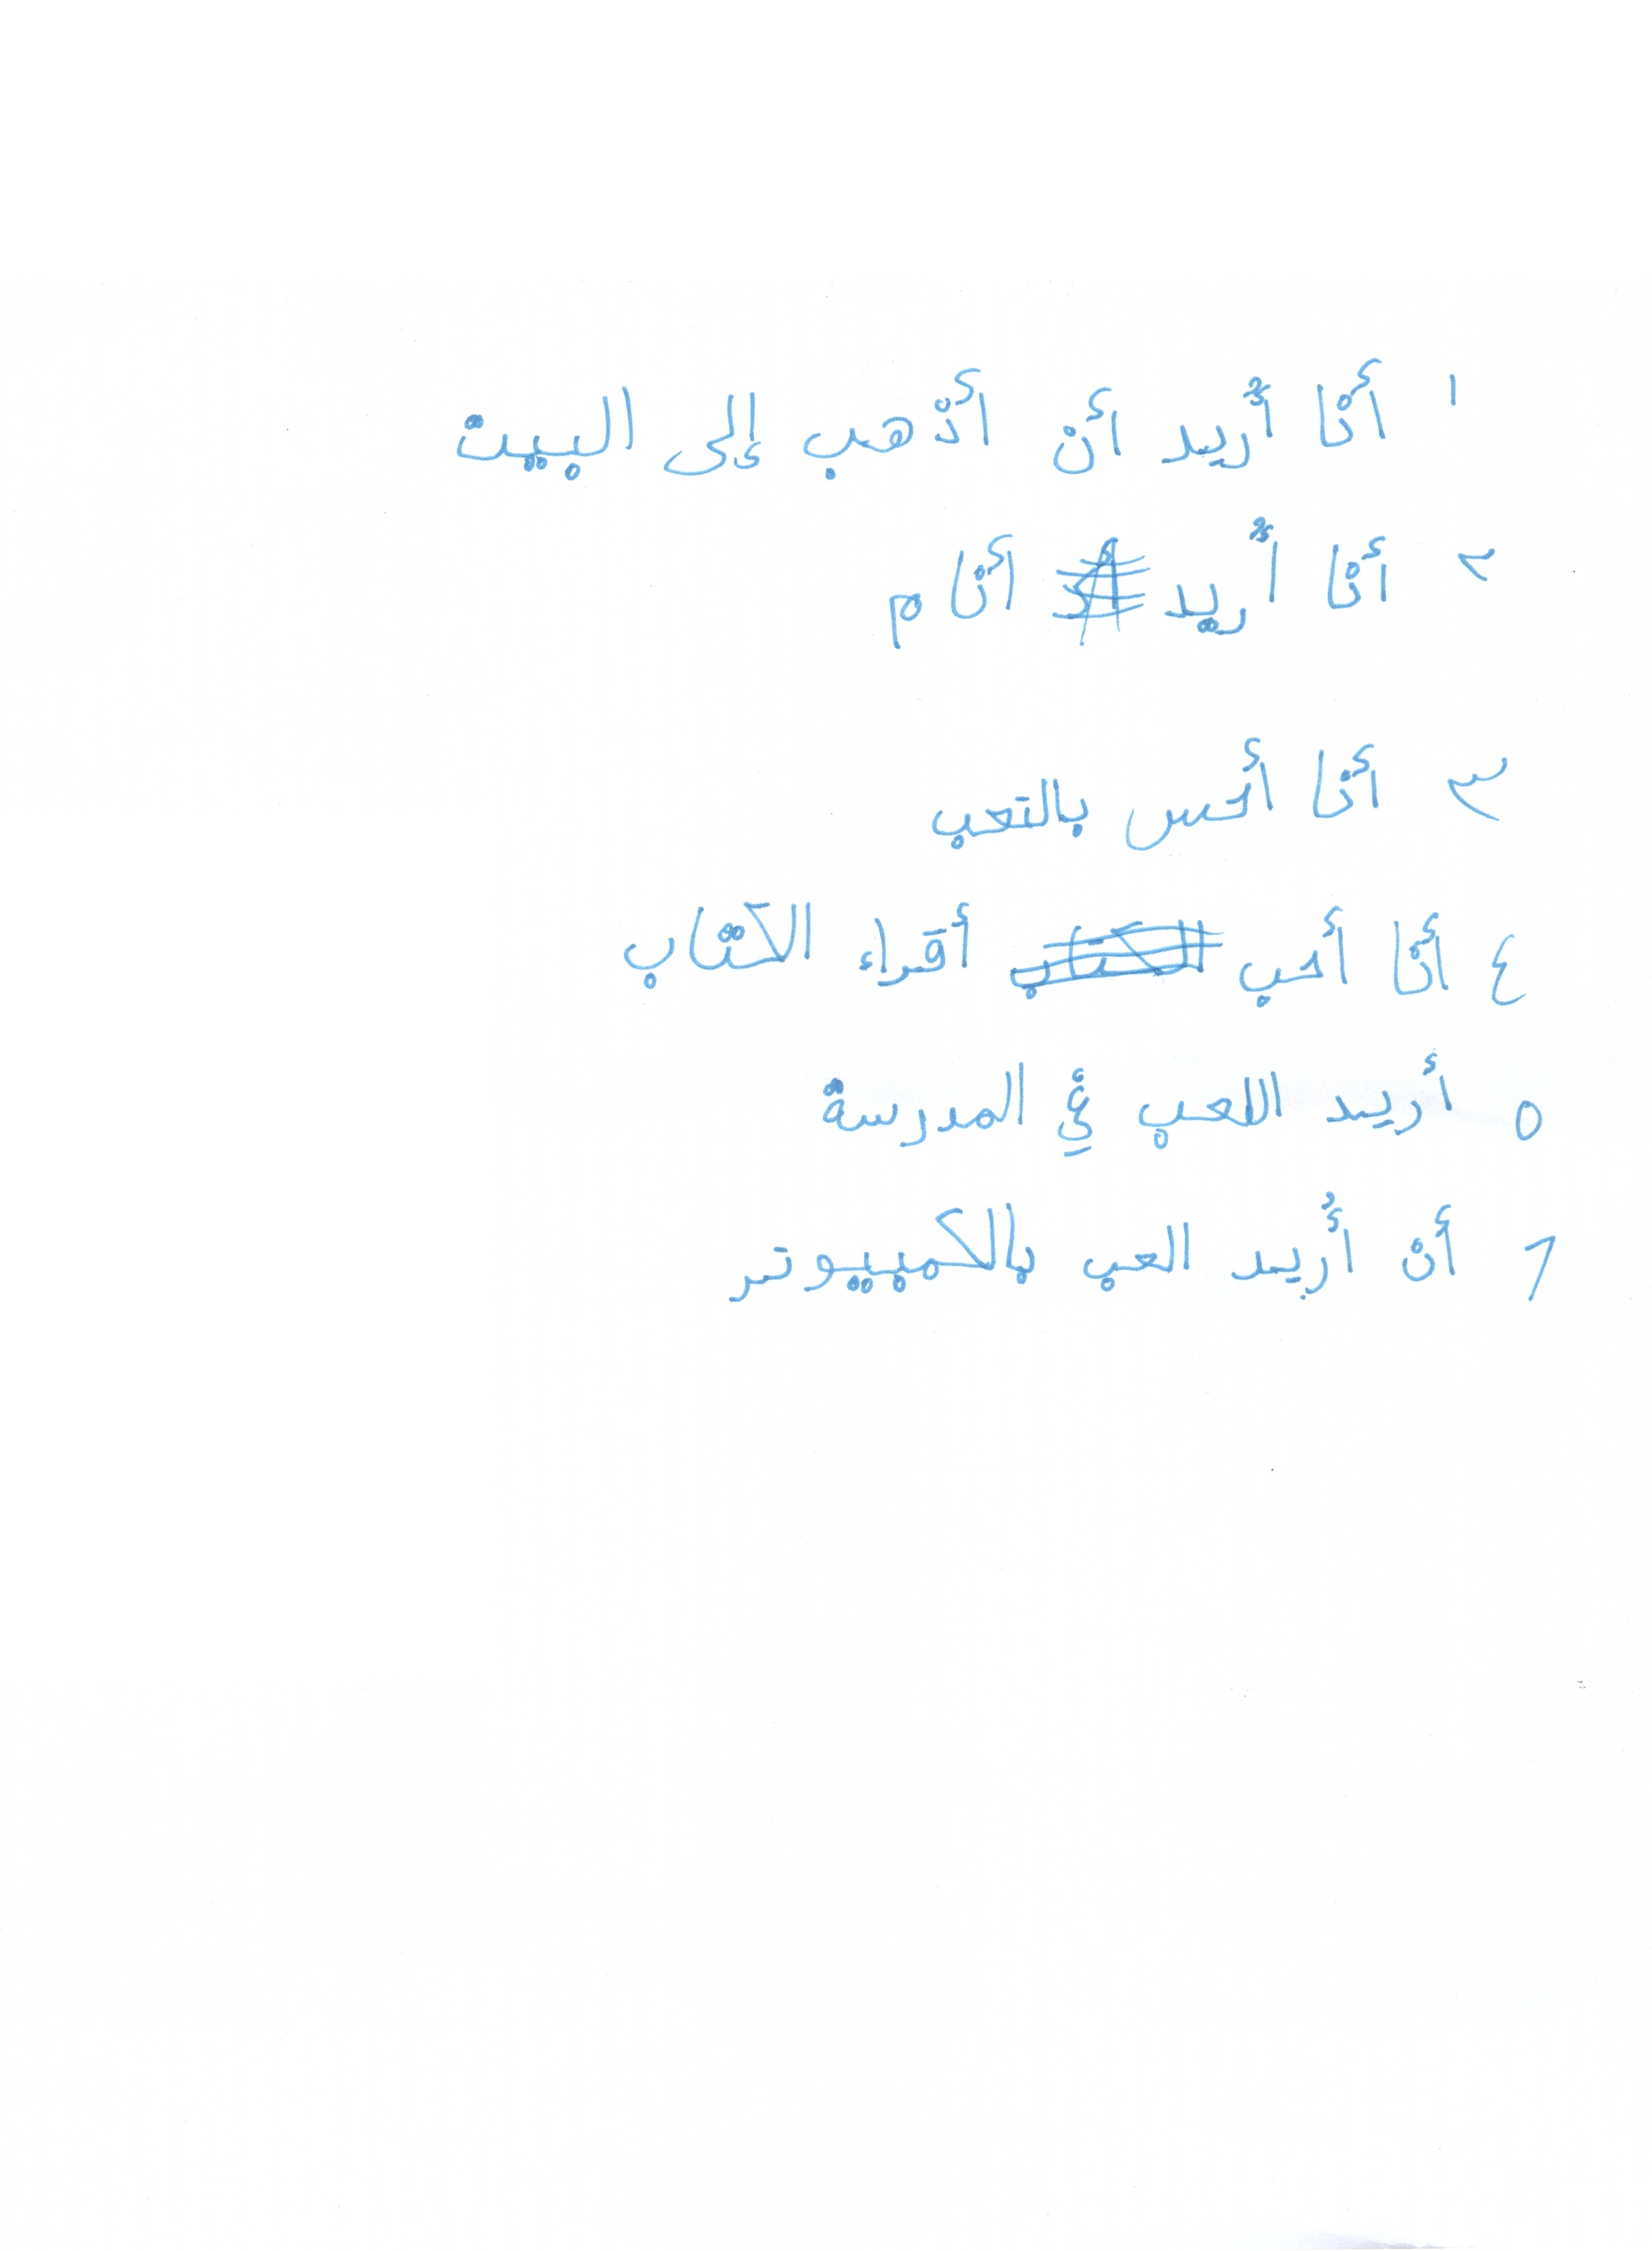 ١ أنا أُريد أن أذهب إلى البيت
٢ أنا أُريد أنام
٣ أنا أحس بالتعب
٤ أنا أحب الكتاب أقراء الكتاب
٥ أريد اللعب في المدرسة
٦ أن أُريد العب بالكمبيوتر